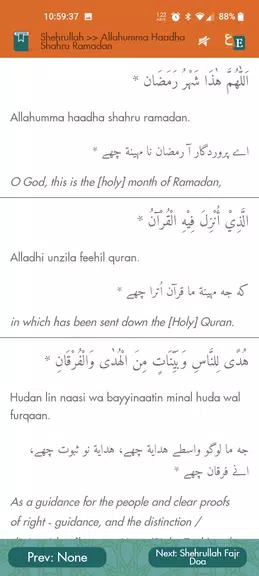 10:59:37
1.23
KB/S
88%
Shehrullah >> Allahumma Haadha
Shahru Ramadan
ع
E
اَللّٰهُمَّ هٰذَا شَهْرُ رَمَضَان *
Allahumma haadha shahru ramadan.
اے پروردگار آ رمضان نا مهينة چھے *
O God, this is the [holy] month of Ramadan,
الَّذِيْ أُنْزِلَ فِيْهِ الْقُرْآنُ *
Alladhi unzila feehil quran.
كه جه مهينة ما قرآن اُترا چھے *
in which has been sent down the [Holy] Quran.
هُدًى لِلنَّاسِ وَبَيِّنَاتٍ مِنَ الْهُدٰى وَالْفُرْقَانِ *
Hudan lin naasi wa bayyinaatin minal huda wal
furqaan.
جه ما لوگو واسطے هداية چھے، هداية نو ثبوت چھے،
انے فرقان چھے *
As a guidance for the people and clear proofs
of right - guidance, and the distinction /
Prev: None
Next: Shehrullah Fajr
Doa